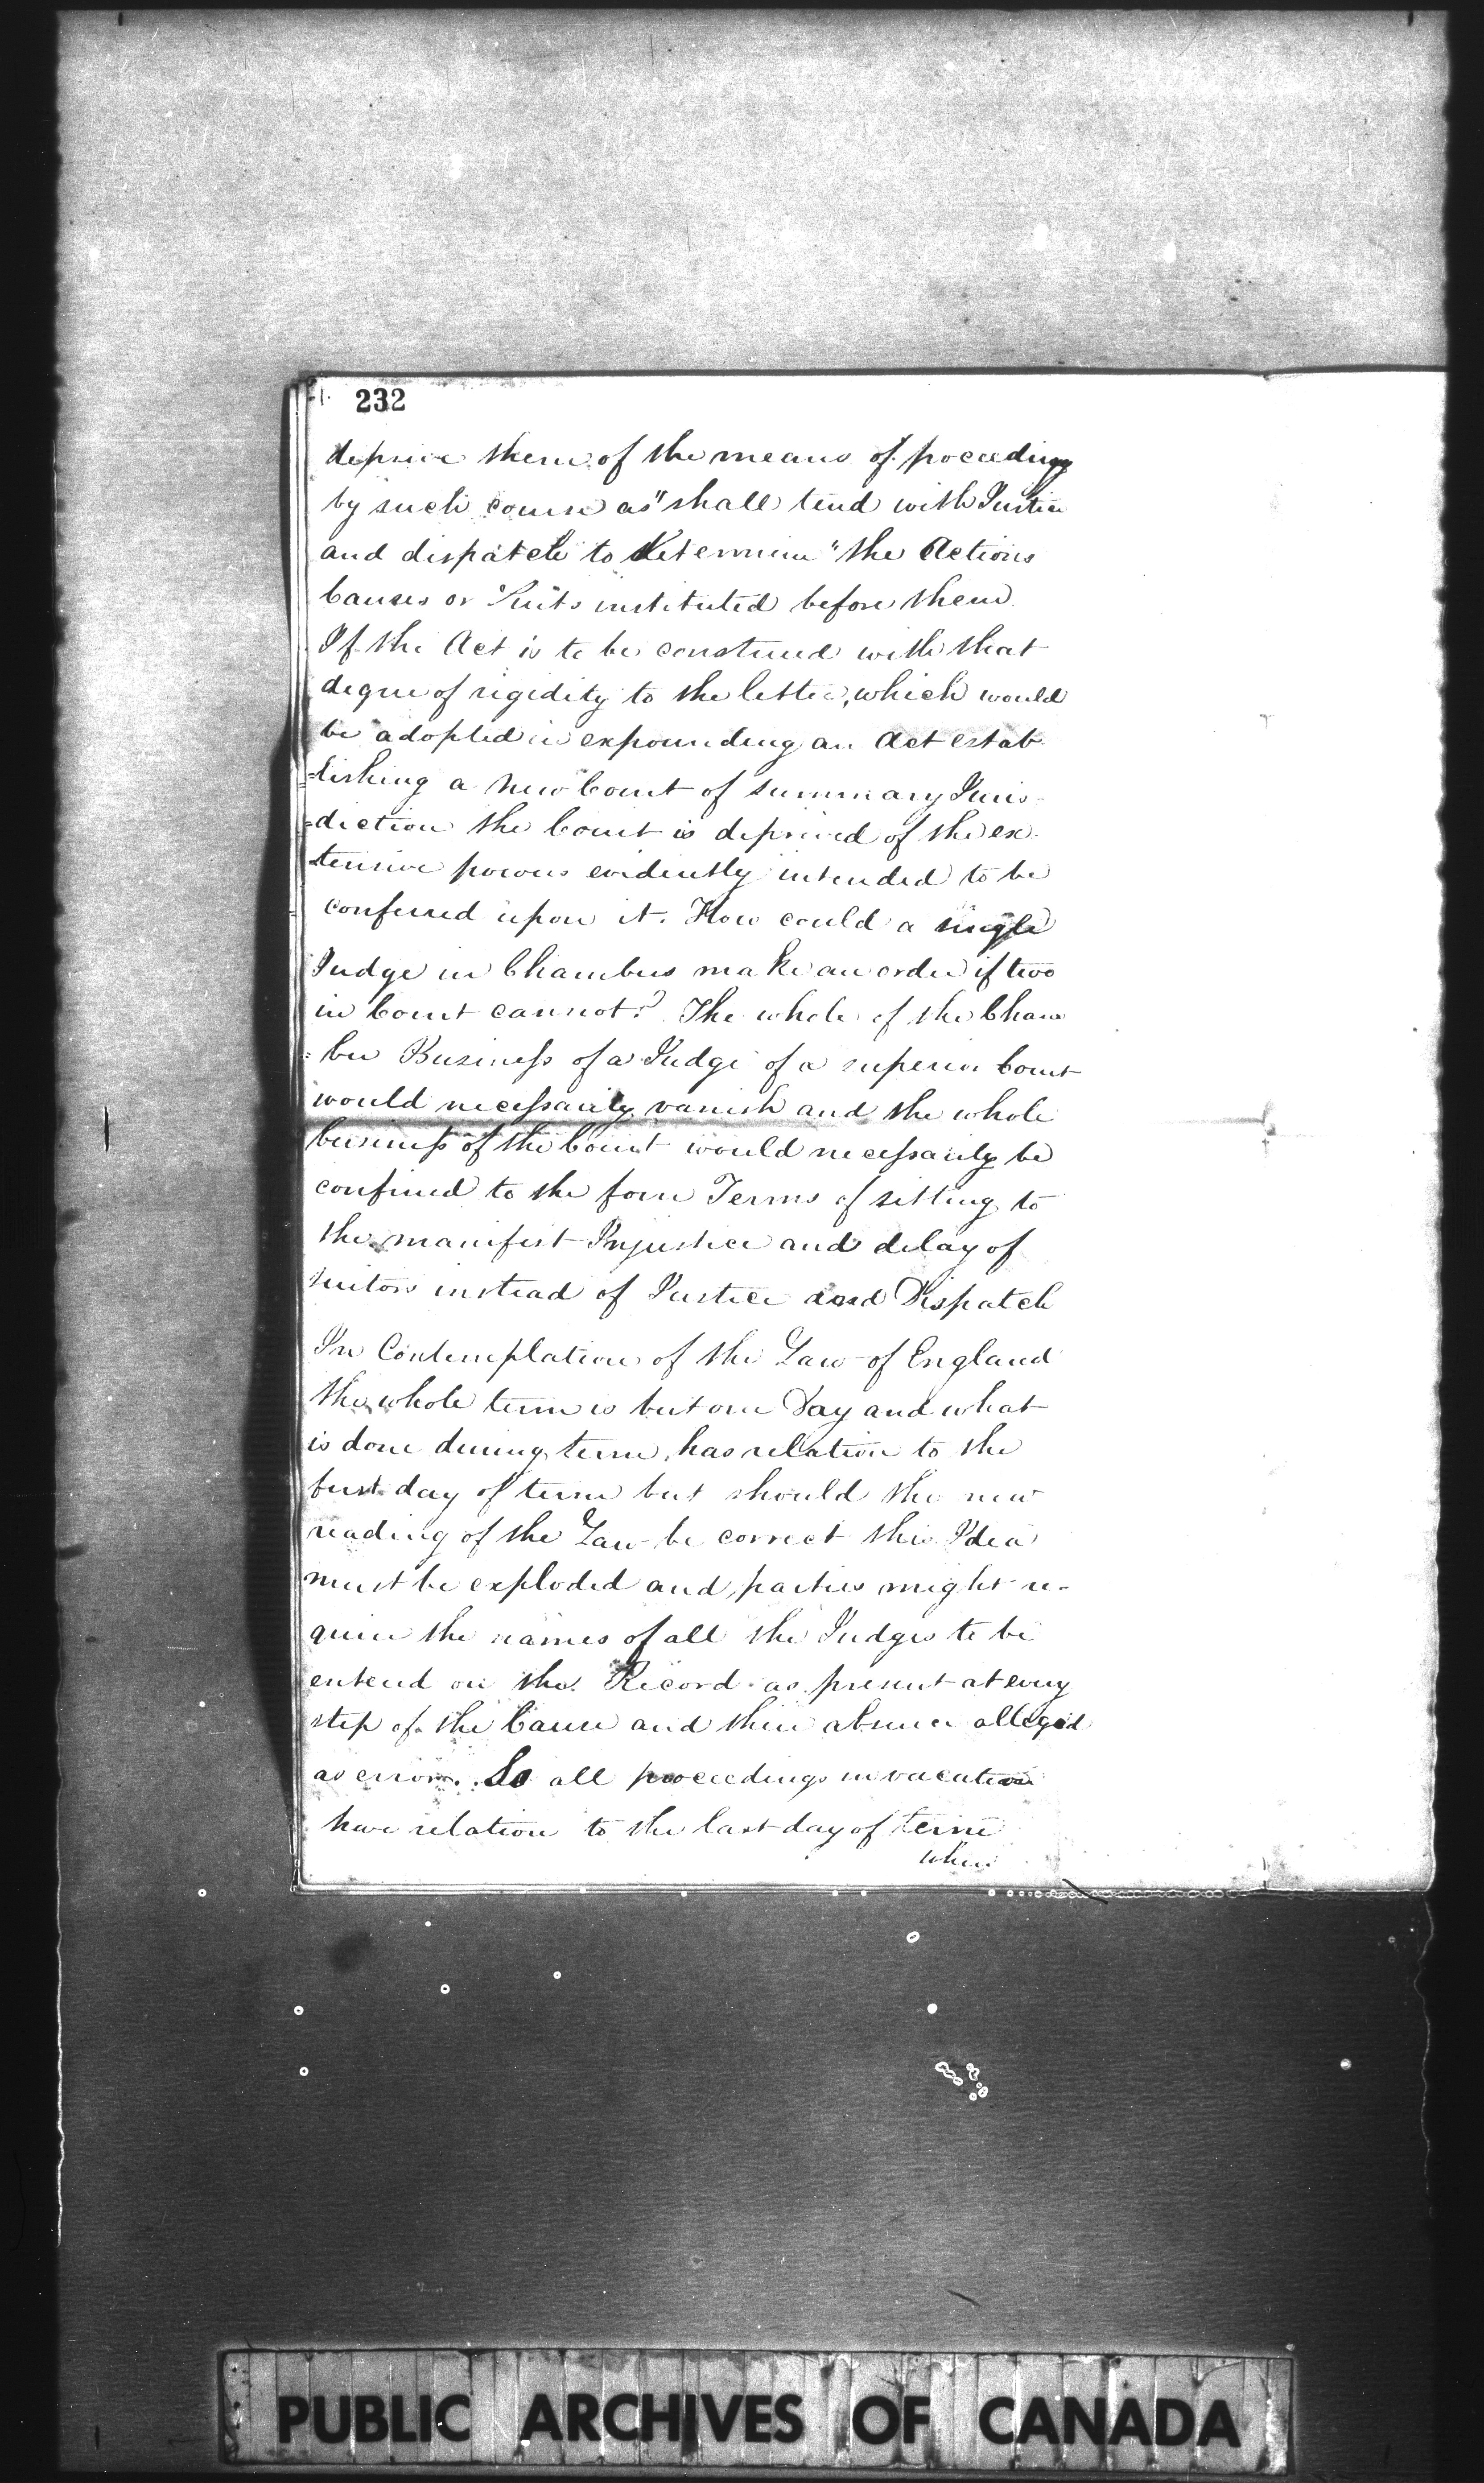 232
deprive them of the means of proceeding
by such course as "shall tend with Justice
and dispatch to determine" the Actions
Causes or Suits instituted before them.
If the Act is to be construed with that
degree of rigidity to the letter, which would
be adopted in expounding an Act estab-
=lishing a new Court of summary Juris-
=diction the Court is deprived of the ex-
tensive powers evidently intended to be
conferred upon it. How could a single
Judge in Chambers make an order if two
in Court cannot? The whole of the Cham
=ber Business of a Judge of a superior Court
would necessarily vanish and the whole
business of the Court would necessarily be
confined to the four Terms of sitting to
the manifest Injustice and delay of
suitors instead of Justice and Dispatch
In Contemplation of the Law of England
the whole term is but one Day and what
is done during term, has relation to the
first day of term but should the new
reading of the Law be correct this Idea
must be exploded and parties might re-
quire the names of all the Judges to be
entered on the Record as present at every
step of the Cause and their absence alleged
as error. So all proceedings in vacation
have relation to the last day of term
when
PUBLIC ARCHIVES OF CANADA